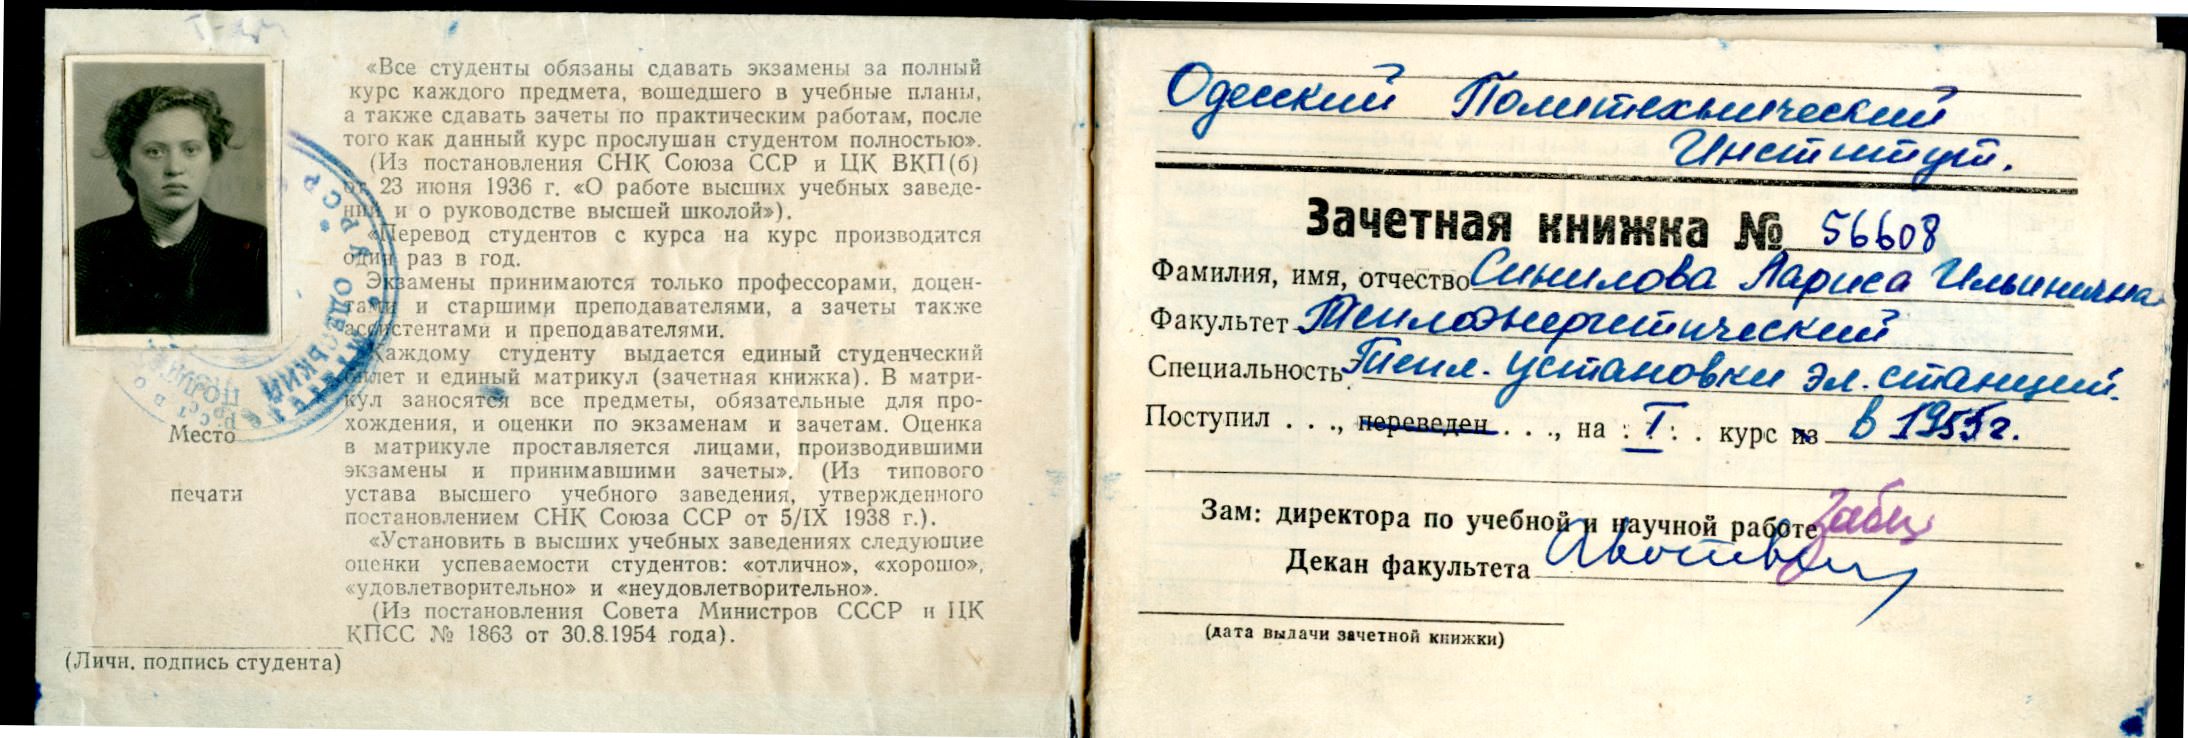 «Все студенты обязаны сдавать экзамены за полный
курс каждого предмета, вошедшего в учебные планы,
а также сдавать зачеты по практическим работам, после
того как данный курс прослушан студентом полностью».
(Из постановления СНК Союза ССР и ЦК ВКП(б)
от 23 июня 1936 г. «О работе высших учебных заведе-
ний и о руководстве высшей школой»).
«Перевод студентов с курса на курс производится
один раз в год.
Экзамены принимаются только профессорами, доцен-
тами и старшими преподавателями, а зачеты также
ассистентами и преподавателями.
Каждому студенту выдается единый студенческий
билет и единый матрикул (зачетная книжка). В матри-
кул заносятся все предметы, обязательные для про-
хождения, и оценки по экзаменам и зачетам. Оценка
в матрикуле проставляется лицами, производившими
экзамены и принимавшими зачеты». (Из типового
устава высшего учебного заведения, утвержденного
постановлением СНК Союза ССР от 5/IX 1938 г.).
«Установить в высших учебных заведениях следующие
оценки успеваемости студентов: «отлично», «хорошо»,
«удовлетворительно» и «неудовлетворительно».
(Из постановления Совета Министров СССР и ЦК
КПСС № 1863 от 30.8.1954 года).
Место
печати
(Личн. подпись студента)
Одесский Политехнический
Институт.
Зачетная книжка № 56608
Фамилия, имя, отчество Синилова Лариса Ильинична
Факультет Теплоэнергетический
Специальность Тепл. установки эл. станций.
Поступил . . ., переведен . . ., на . I . . курс из в 1955 г.
Зам: директора по учебной и научной работе
Декан факультета
(дата выдачи зачетной книжки)